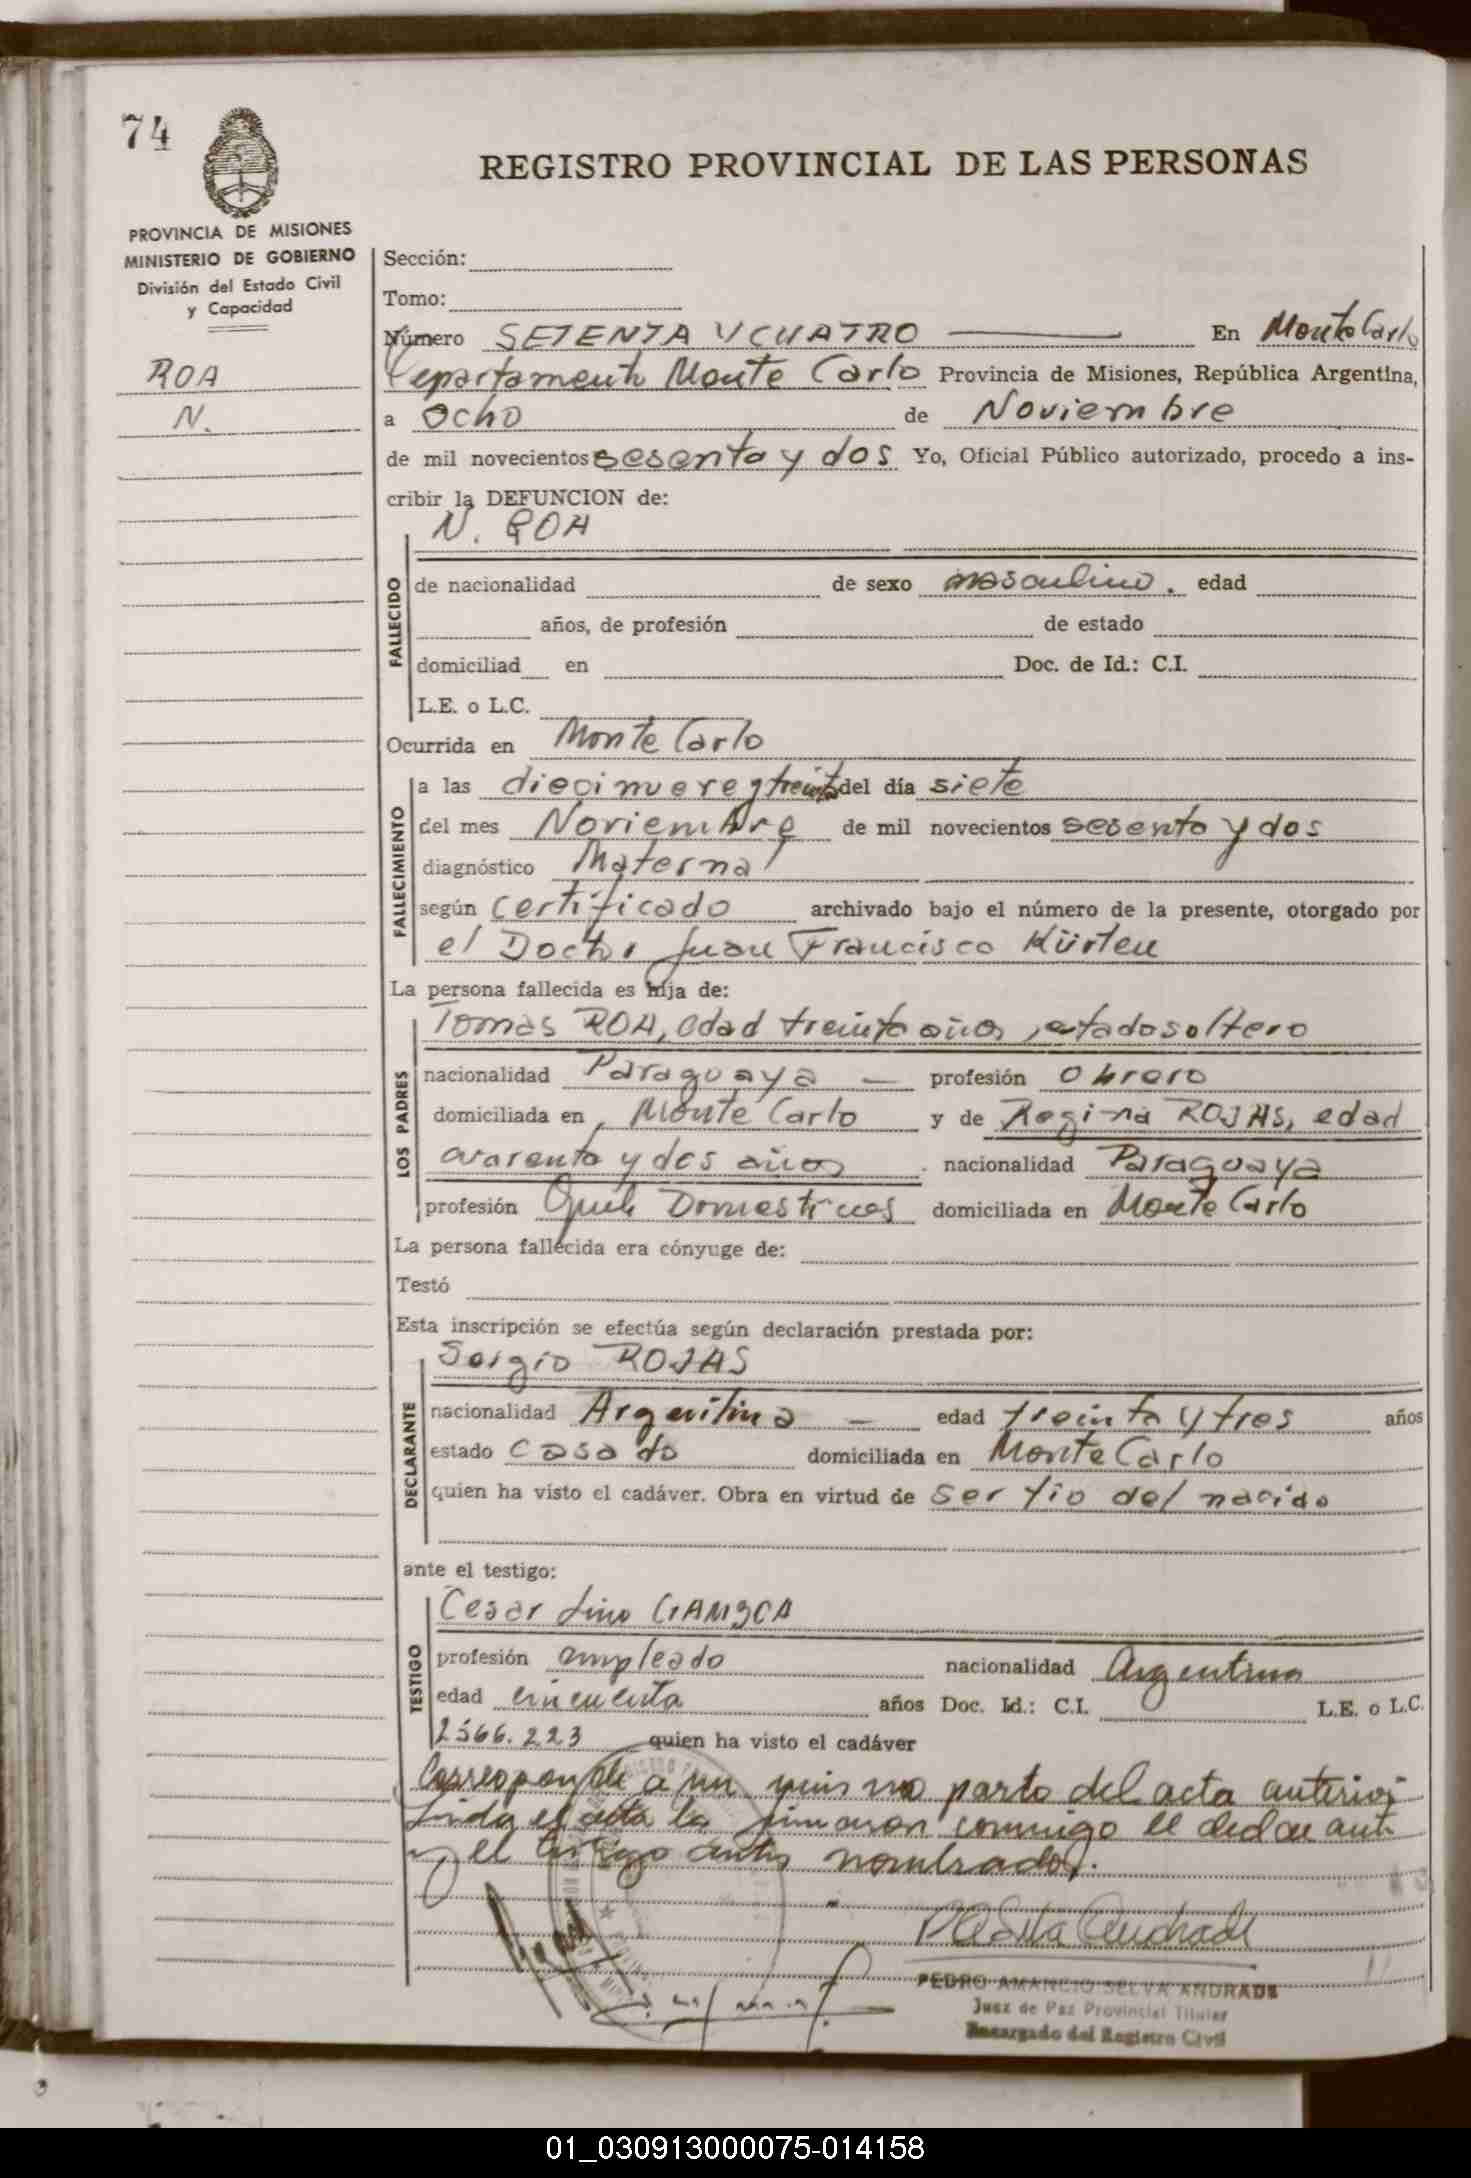 74
REGISTRO PROVINCIAL DE LAS PERSONAS
PROVINCIA DE MISIONES
MINISTERIO DE GOBIERNO
División del Estado Civil
y Capacidad
ROA
N.
Sección:
Tomo:
Número SETENTA Y CUATRO En Monte Carlo
Departamento Monte Carlo Provincia de Misiones, República Argentina,
a Ocho de Noviembre
de mil novecientos sesenta y dos Yo, Oficial Público autorizado, procedo a ins-
cribir la DEFUNCION de:
N. ROA
FALLECIDO
de nacionalidad de sexo masculino. edad
años, de profesión de estado
domiciliad en Doc. de Id.: C.I.
L.E. o L.C.
Ocurrida en Monte Carlo
FALLECIMIENTO
a las diecinueve y treinta del día siete
del mes Noviembre de mil novecientos sesenta y dos
diagnóstico Materna
según certificado archivado bajo el número de la presente, otorgado por
el Doctor Juan Francisco Kürten
La persona fallecida es hija de:
LOS PADRES
Tomas ROA, edad treinta años, estado soltero
nacionalidad Paraguaya — profesión obrero
domiciliada en Monte Carlo y de Regina ROJAS, edad
cuarenta y dos años nacionalidad Paraguaya
profesión Queh Domesticos domiciliada en Monte Carlo
La persona fallecida era cónyuge de:
Testó
Esta inscripción se efectúa según declaración prestada por:
DECLARANTE
Sergio ROJAS
nacionalidad Argentina — edad treinta y tres años
estado Casado domiciliada en Monte Carlo
quien ha visto el cadáver. Obra en virtud de ser tio del nacido
ante el testigo:
TESTIGO
Cesar Lino
profesión empleado nacionalidad Argentina
edad cincuenta años Doc. Id.: C.I. L.E. o L.C.
2566.223 quien ha visto el cadáver
Corresponde a un mismo parto del acta anterior
Leida el acta la firmaron conmigo el declarante
y el testigo antes nombrado.
PEDRO AMANCIO SELVA ANDRADE
Juez de Paz Provincial Titular
Encargado del Registro Civil
01_030913000075-014158